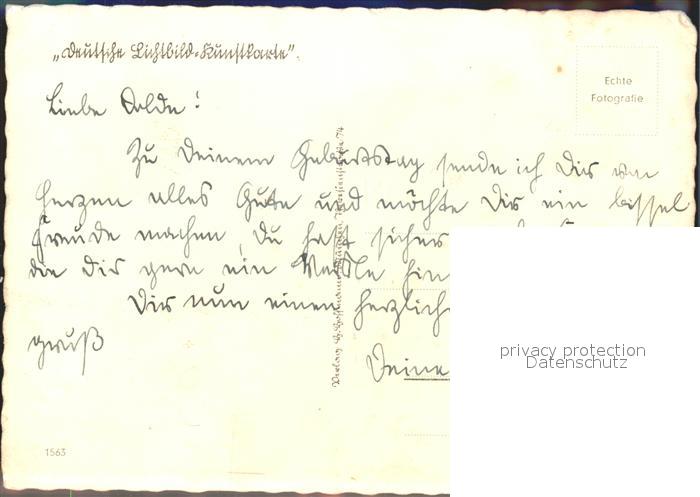 „Deutsche Lichtbild-Kunstkarte".
Echte
Fotografie
Liebe
Zu Deinem Geburtstag sende ich Dir von
Herzen alles Gute und möchte Dir ein bissel
Freude machen, Du hast sicher
die Dir gern ein hin
Dir nun einen herzlich
gruß
Deine
privacy protection
Datenschutz
1563